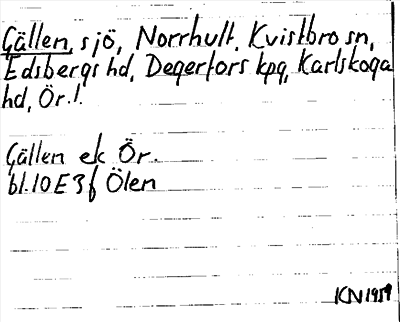 Gällen, sjö, Norrhult, Kvistbro sn,
Edsbergs hd, Degerfors kpg, Karlskoga
hd, Ör.l.
Gällen ek Ör.
bl.10E3f Ölen
KN1959